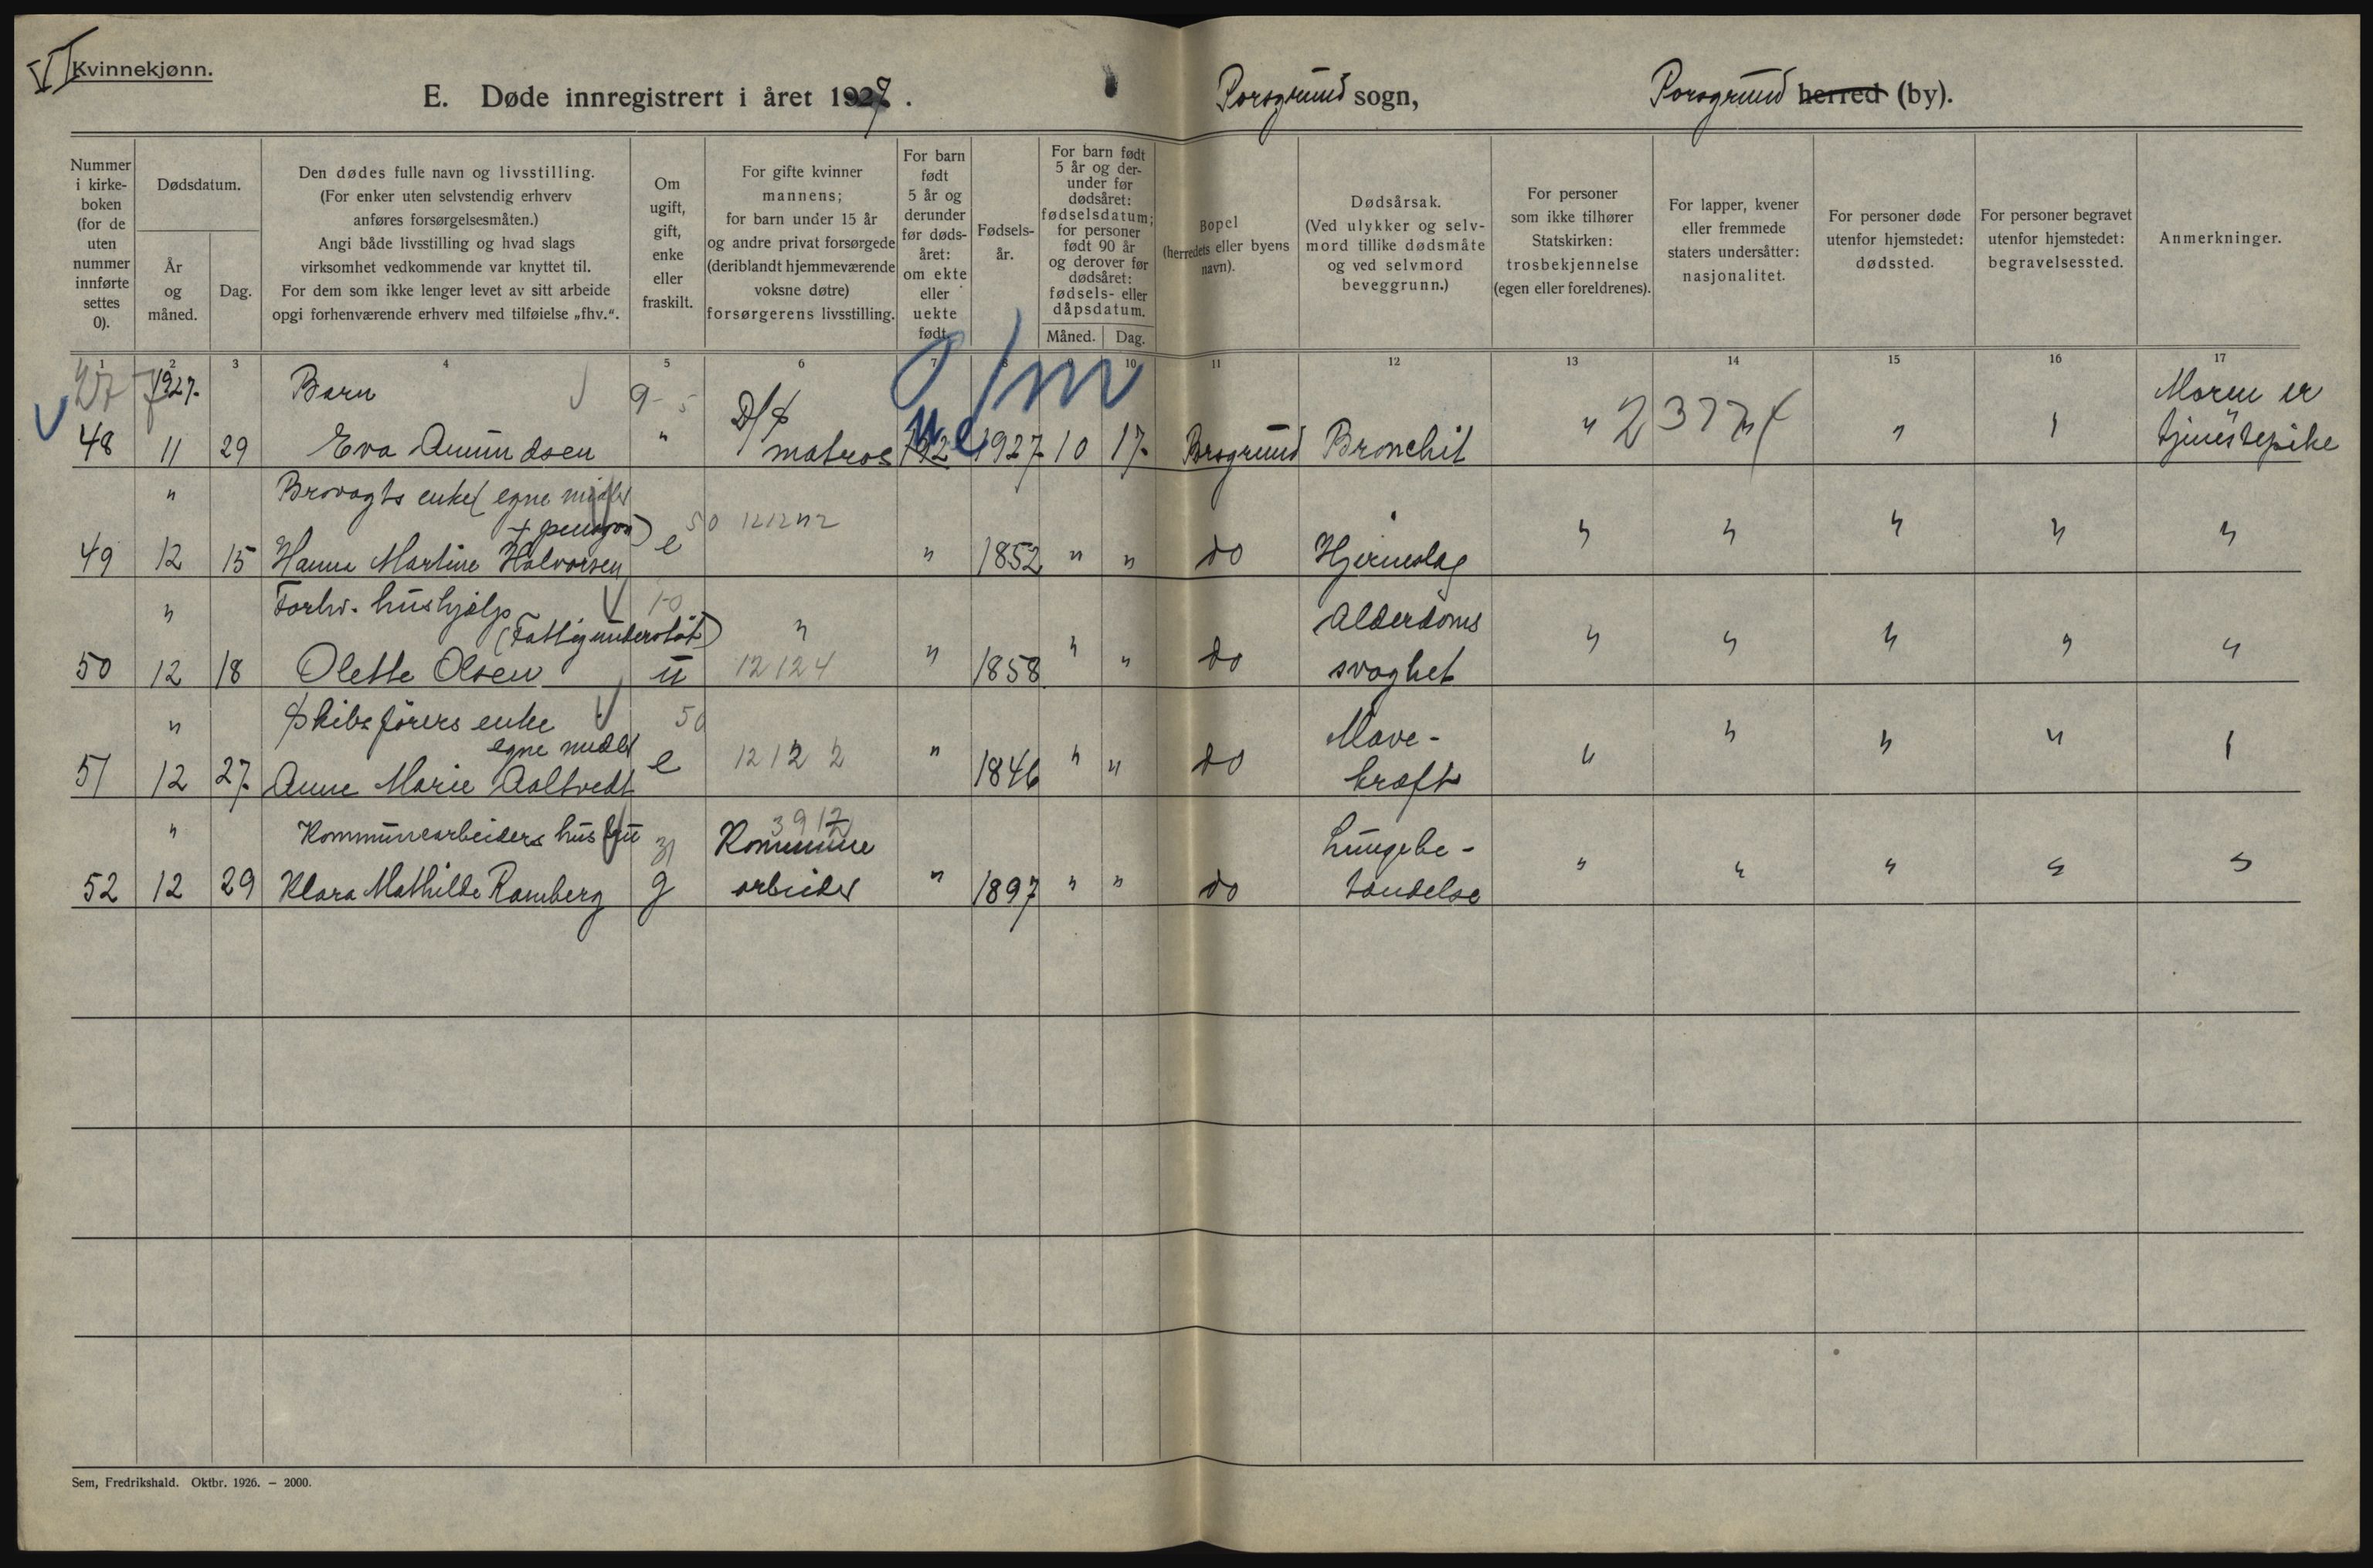 VI Kvinnekjønn.
E. Døde innregistrert i året 1927.
Porsgrund sogn, Porsgrund herred (by).
Nummer i kirkeboken (for de uten nummer innførte settes 0).
Dødsdatum.
År og måned.
Dag.
Den dødes fulle navn og livsstilling.
(For enker uten selvstendig erhverv
anføres forsørgelsesmåten.)
Angi både livsstilling og hvad slags
virksomhet vedkommende var knyttet til.
For dem som ikke lenger levet av sitt arbeide
opgi forhenværende erhverv med tilføielse „fhv.“.
Om ugift, gift, enke eller fraskilt.
For gifte kvinner
mannens;
for barn under 15 år
og andre privat forsørgede
(deriblandt hjemmeværende
voksne døtre)
forsørgerens livsstilling.
For barn født 5 år og derunder før dødsåret: om ekte eller uekte født.
Fødselsår.
For barn født
5 år og derunder før
dødsåret:
fødselsdatum;
for personer
født 90 år
og derover før
dødsåret:
fødsels- eller
dåpsdatum.
Måned. Dag.
Bopel
(herredets eller byens
navn).
Dødsårsak.
(Ved ulykker og selvmord tillike dødsmåte
og ved selvmord
beveggrunn.)
For personer
som ikke tilhører
Statskirken:
trosbekjennelse
(egen eller foreldrenes).
For lapper, kvener
eller fremmede
staters undersåtter:
nasjonalitet.
For personer døde
utenfor hjemstedet:
dødssted.
For personer begravet
utenfor hjemstedet:
begravelsessted.
Anmerkninger.
1 2 3 4 5 6 7 8 9 10 11 12 13 14 15 16 17
1927. Barn 9- 5 D/S o/m Moren er
48 11 29 Eva Amundsen " matros ue 1927 10 17. Porsgrund Bronchit " 23774 " " tjenestepike
" Brovagts enke (egne midler
+ pension) 50 121242
49 12 15 Hanna Martine Halvorsen e " 1852 " " do Hjerneslag " " " " "
" Forhv. hushjelp 10 Alderdoms
(Fattigunderstøt) "
50 12 18 Olette Olsen u 12124 " 1858 " " do svaghet " " " " "
" Skibsførers enke 50 Mave-
egne midler
51 12 27. Anne Marie Aaltvedt e 12122 " 1846 " " do kræft " " " " "
" Kommunearbeiders hustru 31 3912 Kommune Lungebe-
52 12 29 Klara Mathilde Ramberg g arbeider " 1897 " " do tændelse " " " " "
Sem, Fredrikshald. Oktbr. 1926. – 2000.